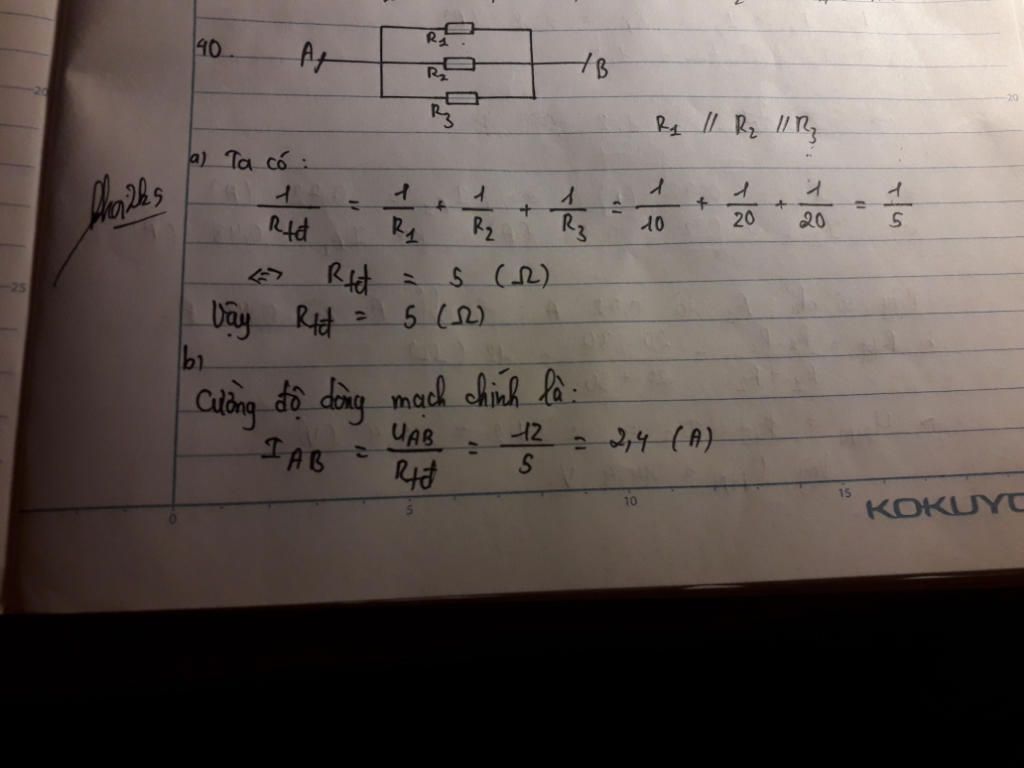 40.
A
R1
R2
R3
B
R1 // R2 // R3
a) Ta có:
1/Rtđ = 1/R1 + 1/R2 + 1/R3 = 1/10 + 1/20 + 1/20 = 1/5
<=> Rtđ = 5 (Ω)
Vậy Rtđ = 5 (Ω)
b)
Cường độ dòng mạch chính là:
IAB = UAB/Rtđ = 12/5 = 2,4 (A)
20
25
20
0
5
10
15
KOKUYO